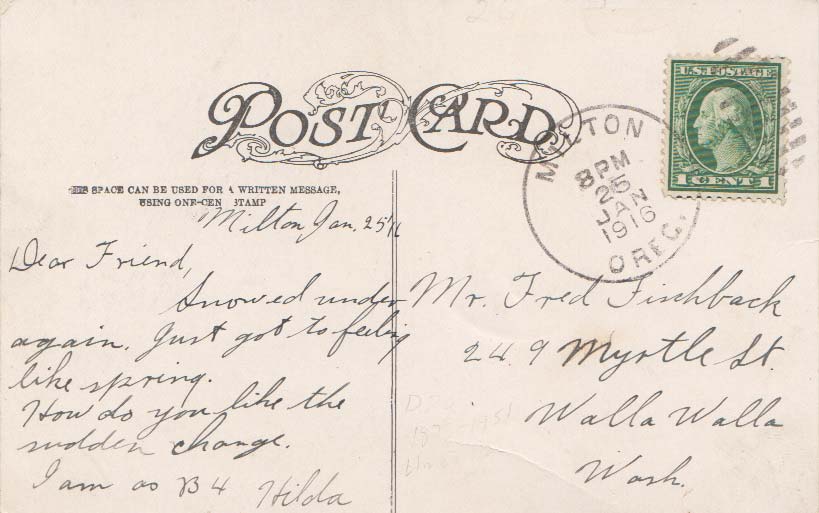 POST CARD
THIS SPACE CAN BE USED FOR A WRITTEN MESSAGE,
USING ONE-CEN STAMP
U.S. POSTAGE
1 CENT 1
MILTON
8 PM
25
JAN
1916
OREG.
Milton, Jan. 25'16
Dear Friend,
Snowed under
again. Just got to feeling
like spring.
How do you like the
sudden change.
I am as B4 Hilda
Mr. Fred Fischback
249 Myrtle St.
Walla Walla
Wash.